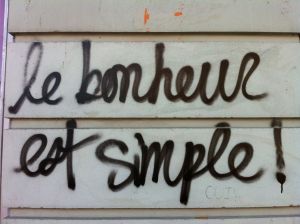 le bonheur
est simple !